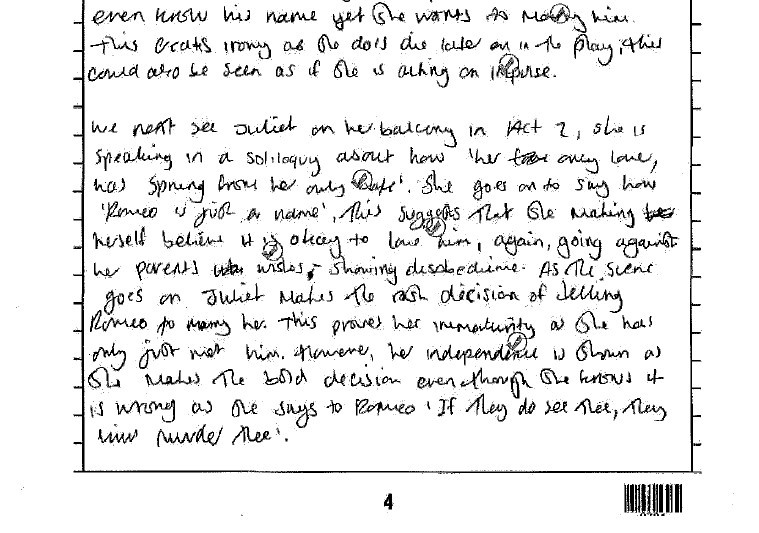 even know his name yet she wants to marry him.
This creats irony as she does die later on in the play, this
could also be seen as if she is acting on impulse.
We next see Juliet on her balcony in Act 2, she is
speaking in a soliloquy about how 'her only love,
has sprung from her only hate'. She goes on to say how
'Romeo is just a name', this suggests that she making
herself believe it is okay to love him, again, going against
her parents wishes, showing disobedience. As the scene
goes on Juliet makes the rash decision of telling
Romeo to marry her. This proves her immaturity as she has
only just met him. However, her independence is shown as
she makes the bold decision even though she knows it
is wrong as she says to Romeo 'If they do see thee, they
will murder thee'.
4